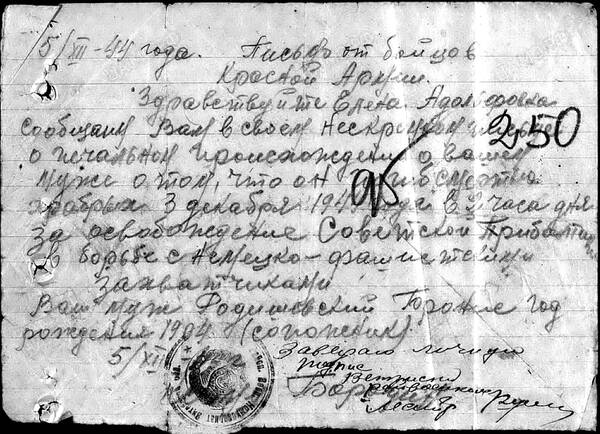 5/XII-44 года. Письмо от бойцов
Красной Армии.
Здравствуйте Елена Адольфовна
сообщаем Вам в своем нескромном письме
250
о печальном происхождении о вашем
муже о том, что он погиб смертью
храбрых 3 декабря 1944 года в 2 часа дня
За освобождение Советской Прибалтики
в борьбе с немецко-фашистскими
захватчиками
Ваш муж Год
рождения 1904 (сапожник)
5/XII
Заверяю личную
подпись